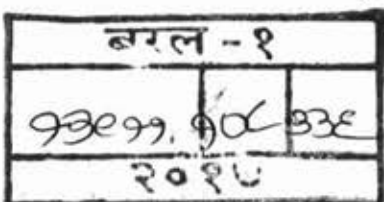 बरल - १
१३९११. १०८ ३३६
२०१५